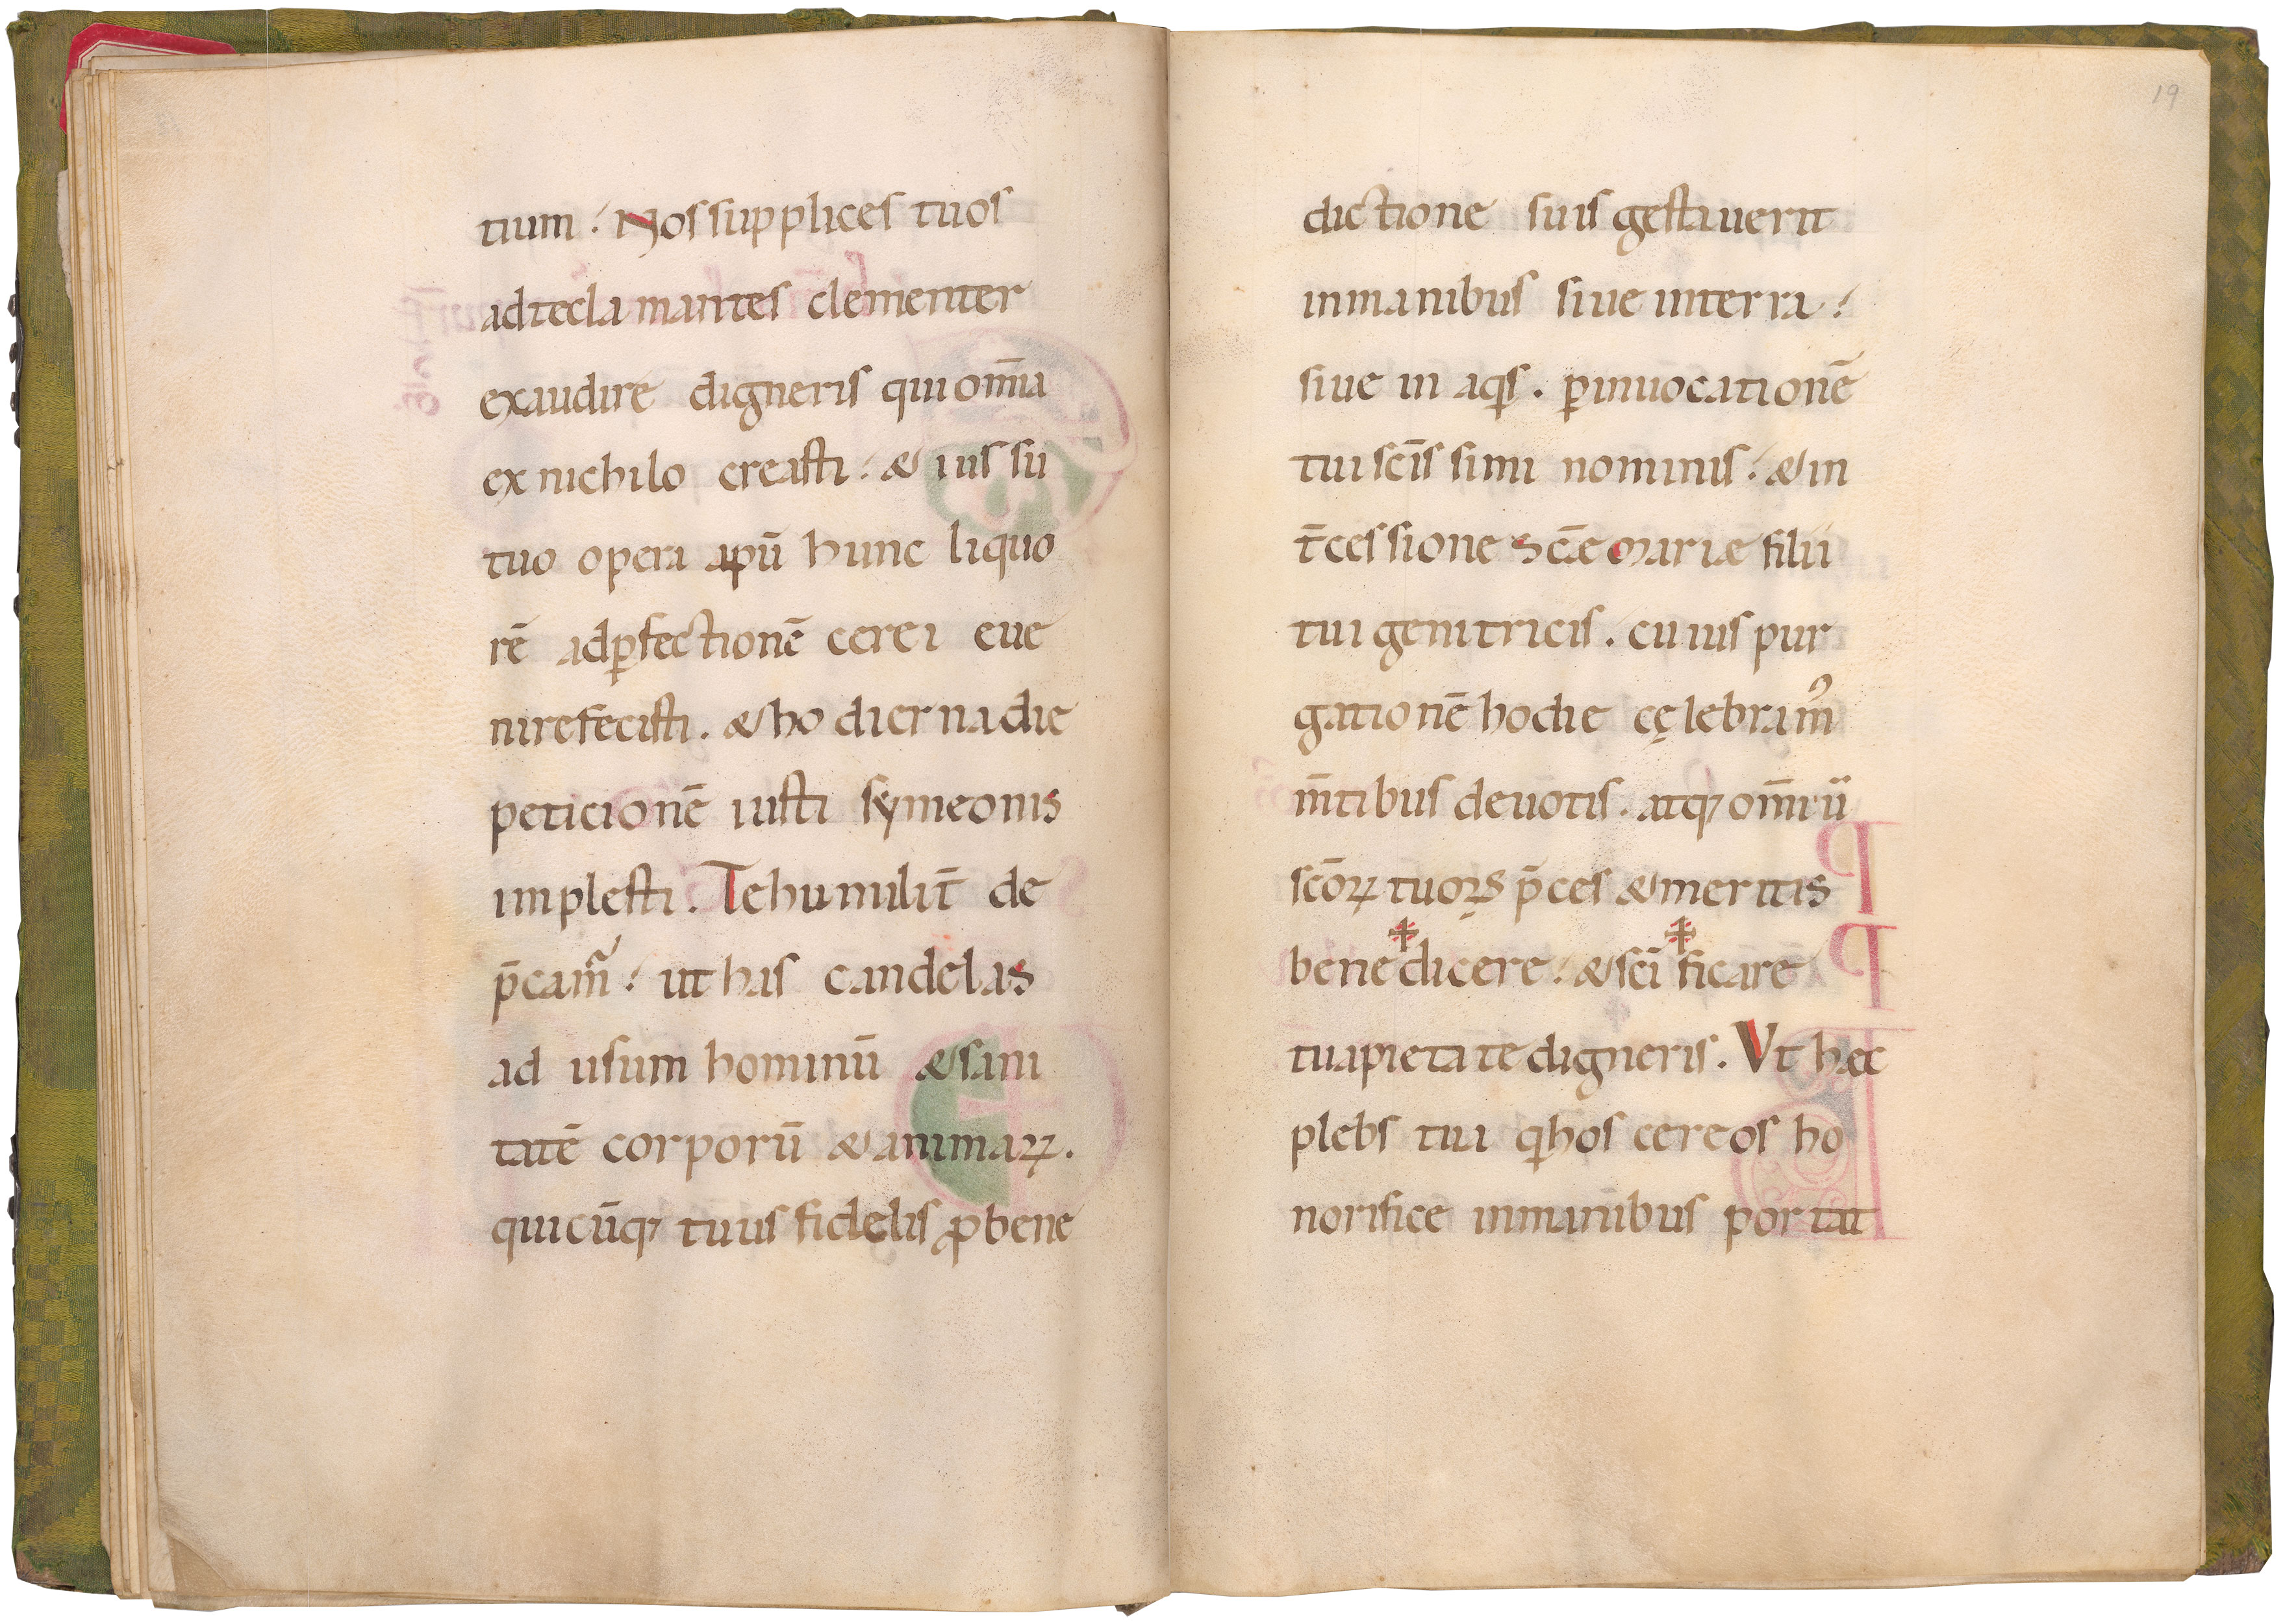 tium. Nos supplices tuos
ad te clamantes clementer
exaudire digneris qui om̄ia
ex nichilo creasti. & iussu
tuo opera apū hunc liquo
rē ad ꝑfectionē cerei eue
nire fecisti. & hodierna die
peticionē iusti sẏmeonis
implesti. Te humilit̄ de
p̄cam̃. ut has candelas
ad usum hominū & sani
tatē corporū & animaꝝ.
quicūq; tuus fidelis ꝓ bene
19
dictione suis gestauerit
in manibus siue in terra.
siue in aq̄s. ꝑ inuocationē
tui sc̄issimi nominis. & in
t̄cessione Sc̄ae Mariæ filii
tui genitricis. cuius pur
gationē hodie cęlebram᾽
m̄tibus deuotis. atq; om̄iū
sc̄oꝝ tuoꝝ s p̄ces & meritis
bene✝dicere. & sc̄i✝ficare
tua pietate digneris. Vt hæc
plebs tua q̄ hos cereos ho
norifice in manibus portat